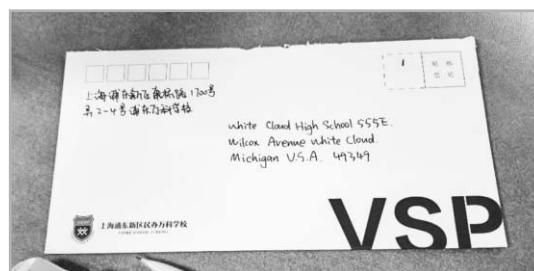 上海浦东新区秀沿路1700号
弄2-4号浦东万科学校
White Cloud High School 555E.
Wilcox Avenue White Cloud.
Michigan U.S.A. 49349
上海浦东新区民办万科学校
VSP